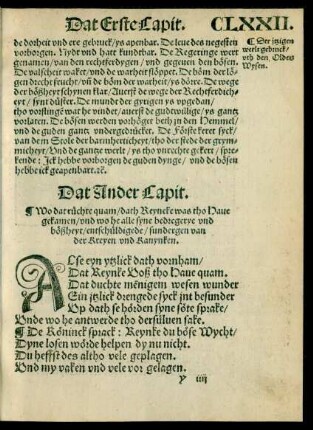 Dat Erste Capit. CLXXII.
de dorheit vnd ere gebruck/ys apenbar. De leue des negesten
vorborgen. Nydt vnd hatt kundtbar. De Regeringe wert
genamen/van den rechtferdygen/vnd gegeuen den bösen.
De valscheit waket/vnd de warheit slöppet. De böm der lö-
gen drecht frucht/vn̄ de böm der warheit/ys dörre. De wech
der bößheyt schynen klar/Auerst de wege der Rechtferdich-
eyt/synt düster. De munder der gyrigen ys vpgedan/
vorlaten. De bösen werden vorhöget beth in den Hemmel/
vnd de guden gantz vndergedrücket. De Förste keret syck/
van dem Stole der barmherticheyt/tho der stede der grym-
micheyt/Vnd de gantze werlt/ys tho vnrechte gekert/spre-
kende: Ick hebbe vorborgen de guden dynge/vnd de bösen
hebbe ick geapenbart.ꝛc.
¶ Der itzigen
werlt gebruck/
vth den Olden
Wysen.
Dat Ander Capit.
¶ Wo dat rüchte quam/dath Reyncke was tho Haue
gekamen/vnd wo he alle syne bedregerye vnd
bößheyt/entschüldigede/sundergen van
der Kreyen vnd Kanynken.
Alse eyn ytzlick dath vornham/
Dat Reynke Voß tho Haue quam.
Dat duchte mēnigem wesen wunder
Ein itzlick drengede syck int besunder
Vp dath se hörden syne söte sprake/
Vnde wo he antwerde tho dersüluen sake.
¶ De Köninck sprack: Reynke du böse Wycht/
Dyne losen wörde helpen dy nu nicht.
Du heffst des altho vele geplagen.
Vnd my vaken vnd vele vor gelagen.
y iiij